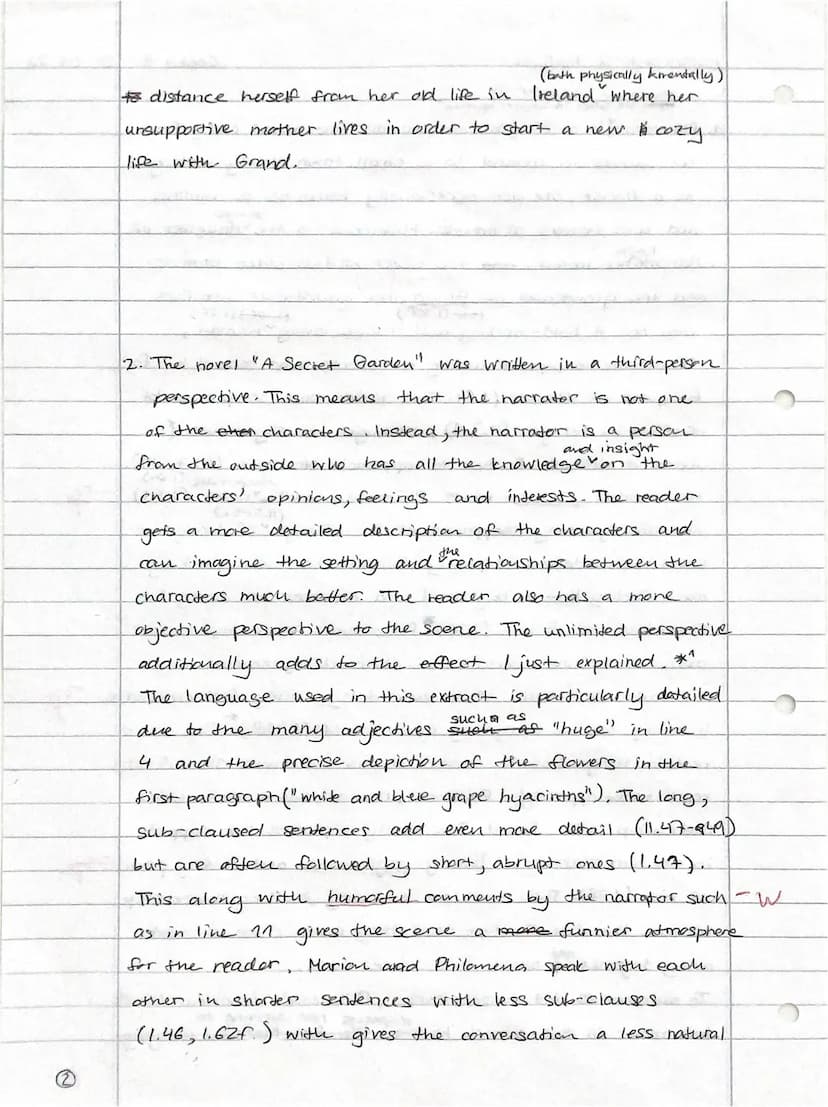 (both physically & mentally)
to distance herself from her old life in Ireland where her
unsupportive mother lives in order to start a new & cozy
life with Grand.
2. The novel "A Secret Garden" was written in a third-person
perspective. This means that the narrator is not one
of the characters. Instead, the narrator is a person
and insight
from the outside who has all the knowledge on the
characters' opinions, feelings and interests. The reader
gets a more detailed description of the characters and
the
can imagine the setting and relationships between the
characters much better. The reader also has a more
objective perspective to the scene. The unlimited perspective
additionally adds to the effect I just explained. *1
The language used in this extract is particularly detailed
such as
due to the many adjectives such as "huge" in line
4 and the precise depiction of the flowers in the
first paragraph ("white and blue grape hyacinths"). The long,
sub-claused sentences add even more detail (ll.47-49)
but are often followed by short, abrupt ones (l.47).
This along with humorful comments by the narrator such - W
as in line 11 gives the scene a more funnier atmosphere
for the reader. Marion and Philomena speak with each
other in shorter sentences with less sub-clauses
(l.46, l.62f.) with gives the conversation a less natural
2